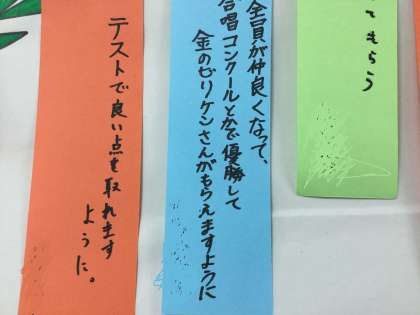 てもらう
全員が仲良くなって、
合唱コンクールとかで優勝して
金のビリケンさんがもらえますように
テストで良い点を取れます
ように。